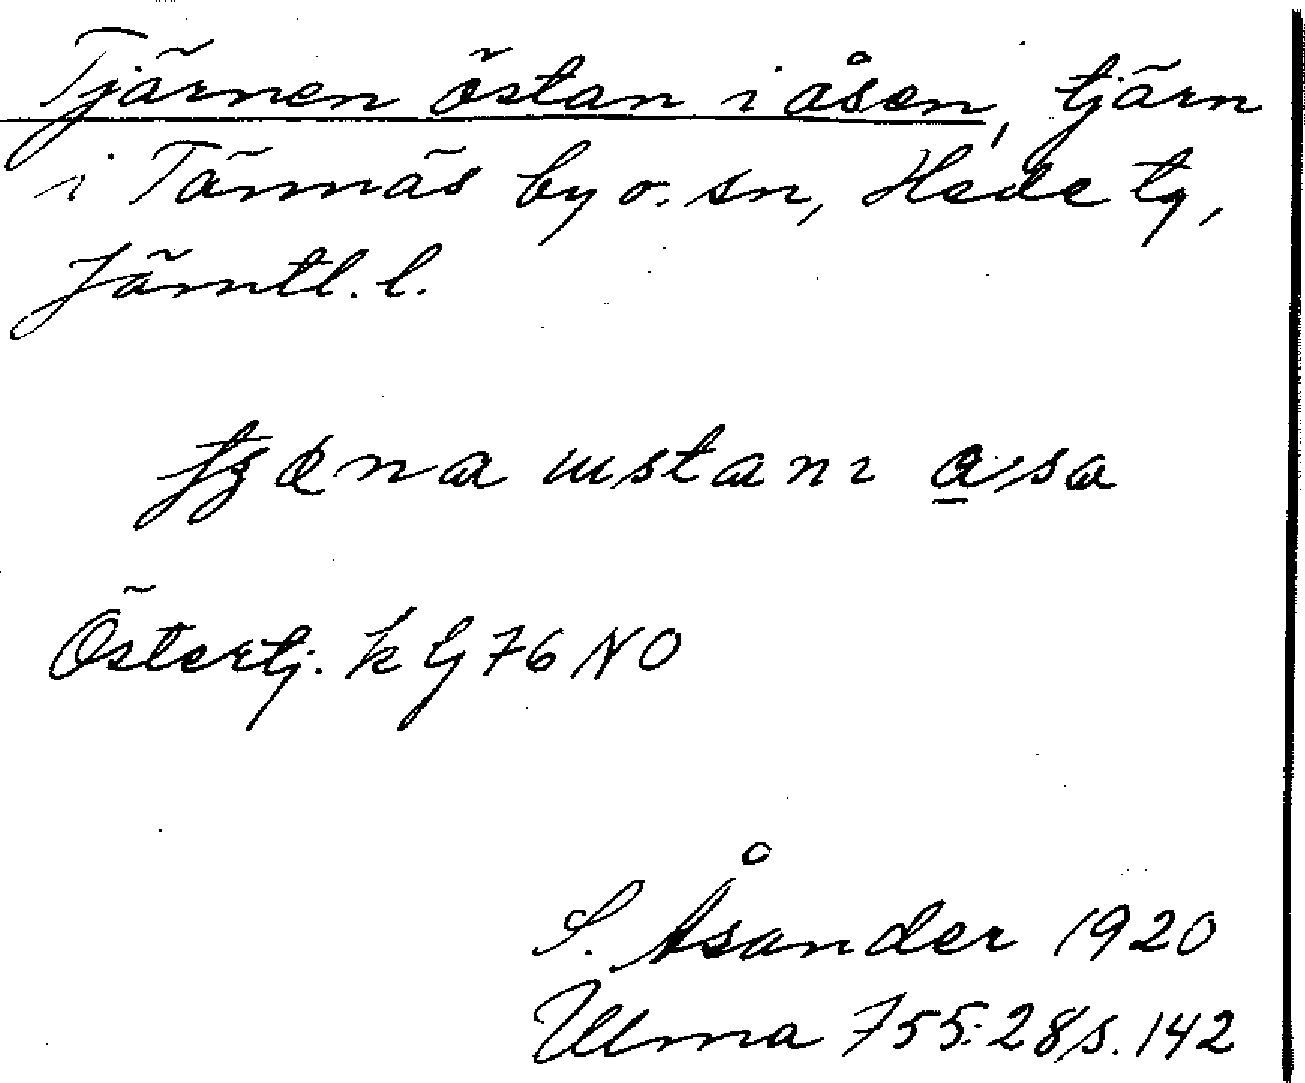 Tjärnen östan i åsen, tjärn
i Tännäs by o. sn, Hede tg,
Jämtl. l.
Östertj. k G 76 NO
S. Åsander 1920
Ulma 755:28 s. 142